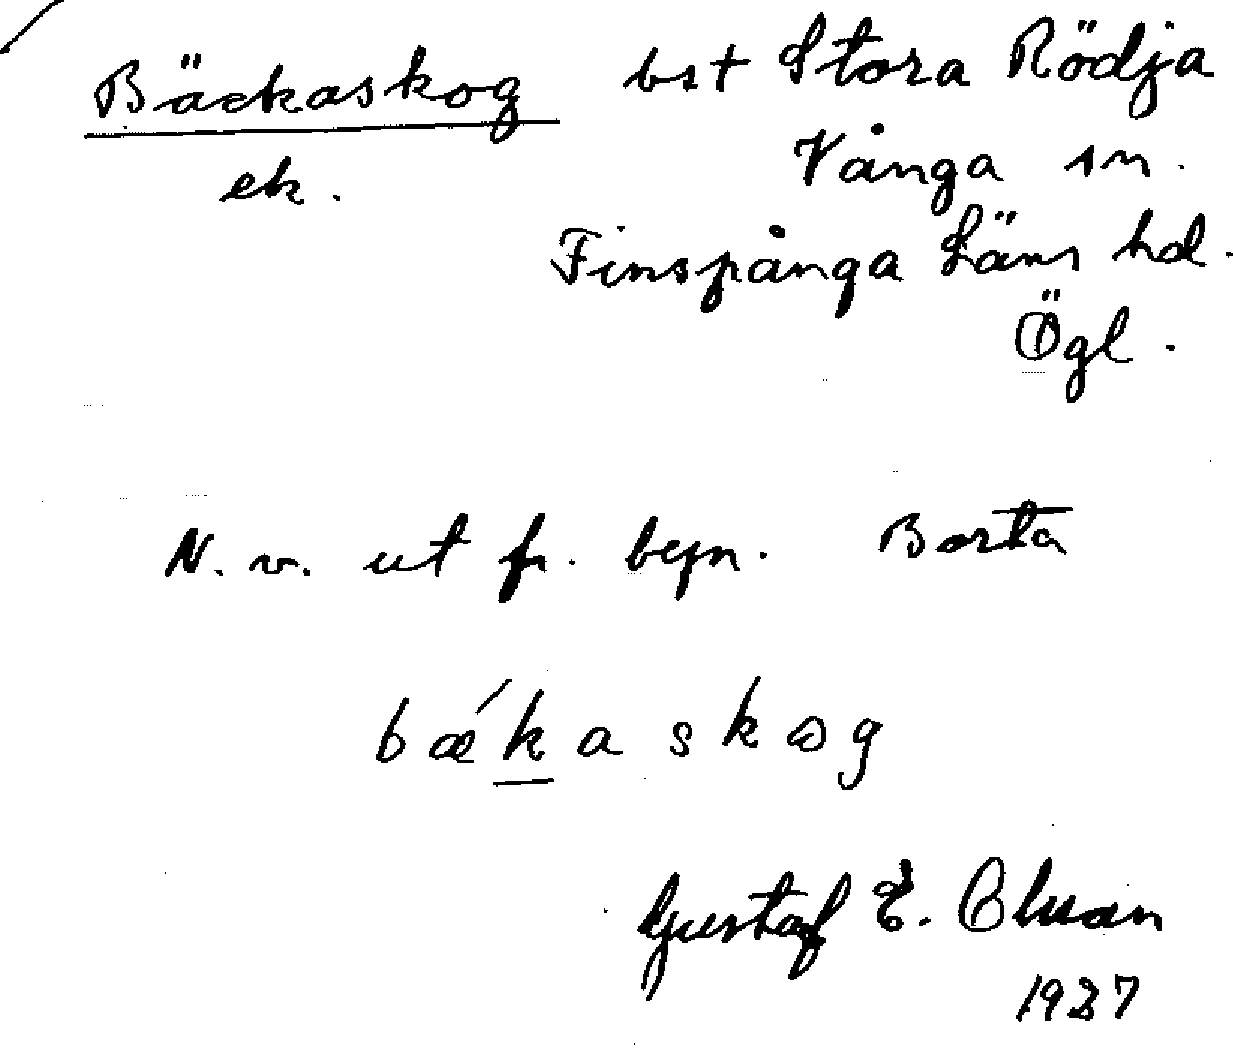 Bäckaskog bst Stora Rödja
ek. Vånga sn.
Finspånga Läns hd.
Ögl.
N. v. ut fr. begn. Borta
bǽkaskog
Gustaf E. Olsson
1937